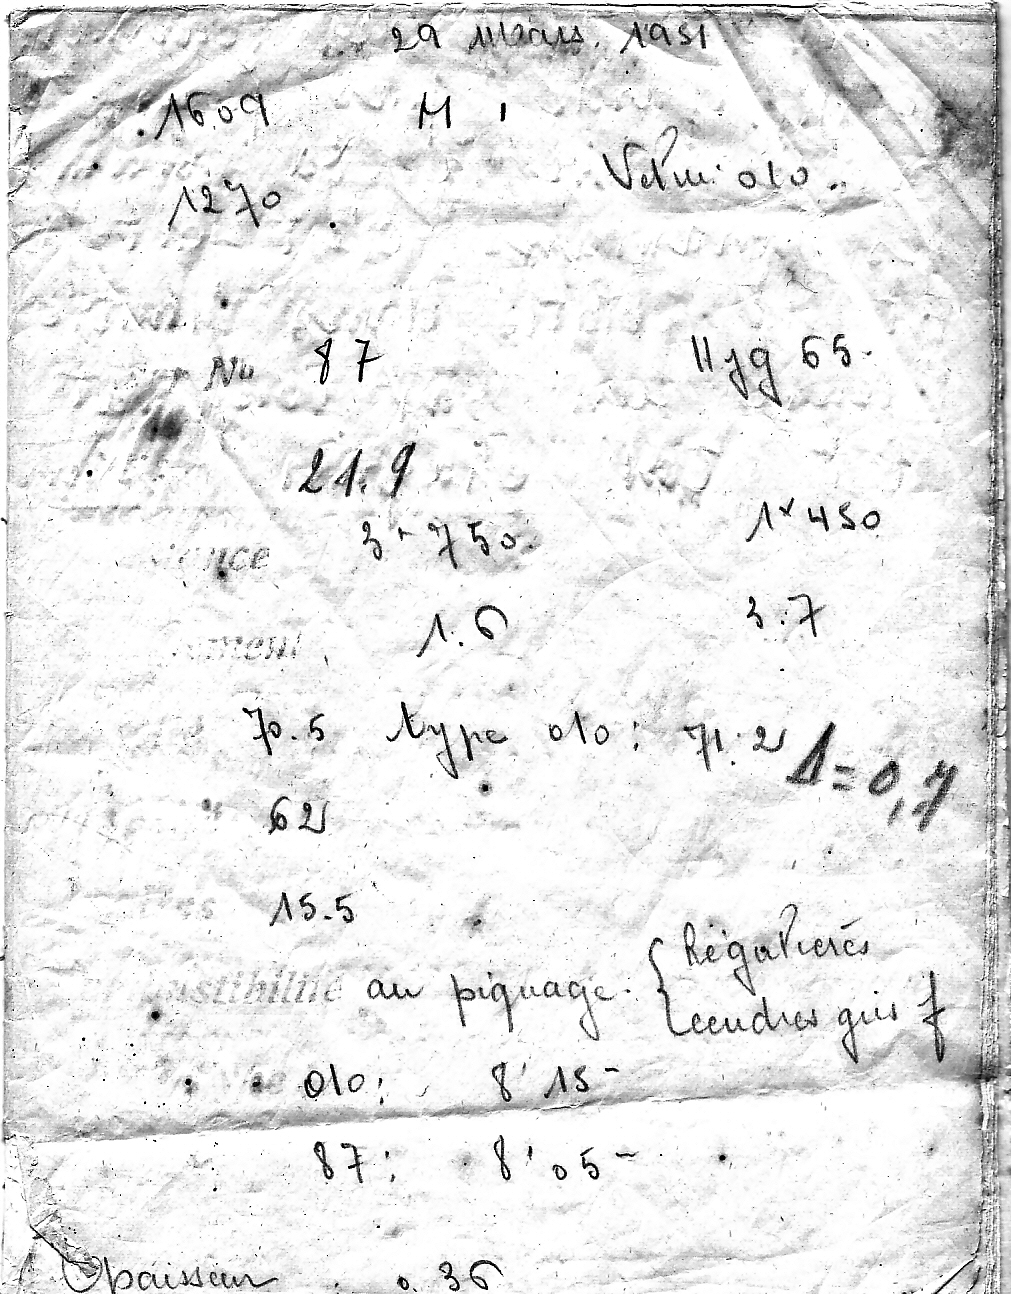 29 Mars. 1951
1609 M 1
Velin 010.
1270
No 87 Hyg 65.
21.9
3 x 750. 1 x 450
1.6 3.7
70.5 type 010: 71.2 Δ=0,7
62
15.5
au piquage. { Régulières
cendres gris f
010: 8' 15"
87: 8' 05"
Epaisseur 0.36